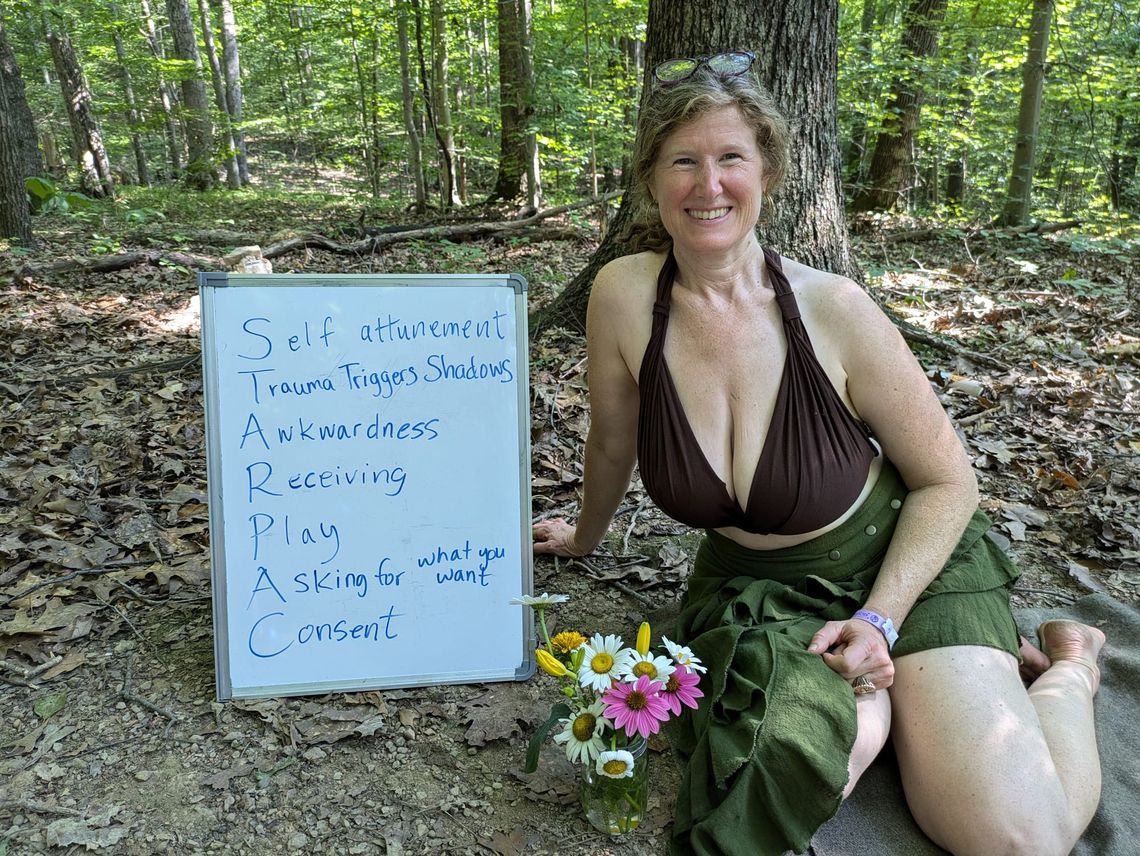 Self attunement
Trauma Triggers Shadows
Awkwardness
Receiving
Play
Asking for what you want
Consent